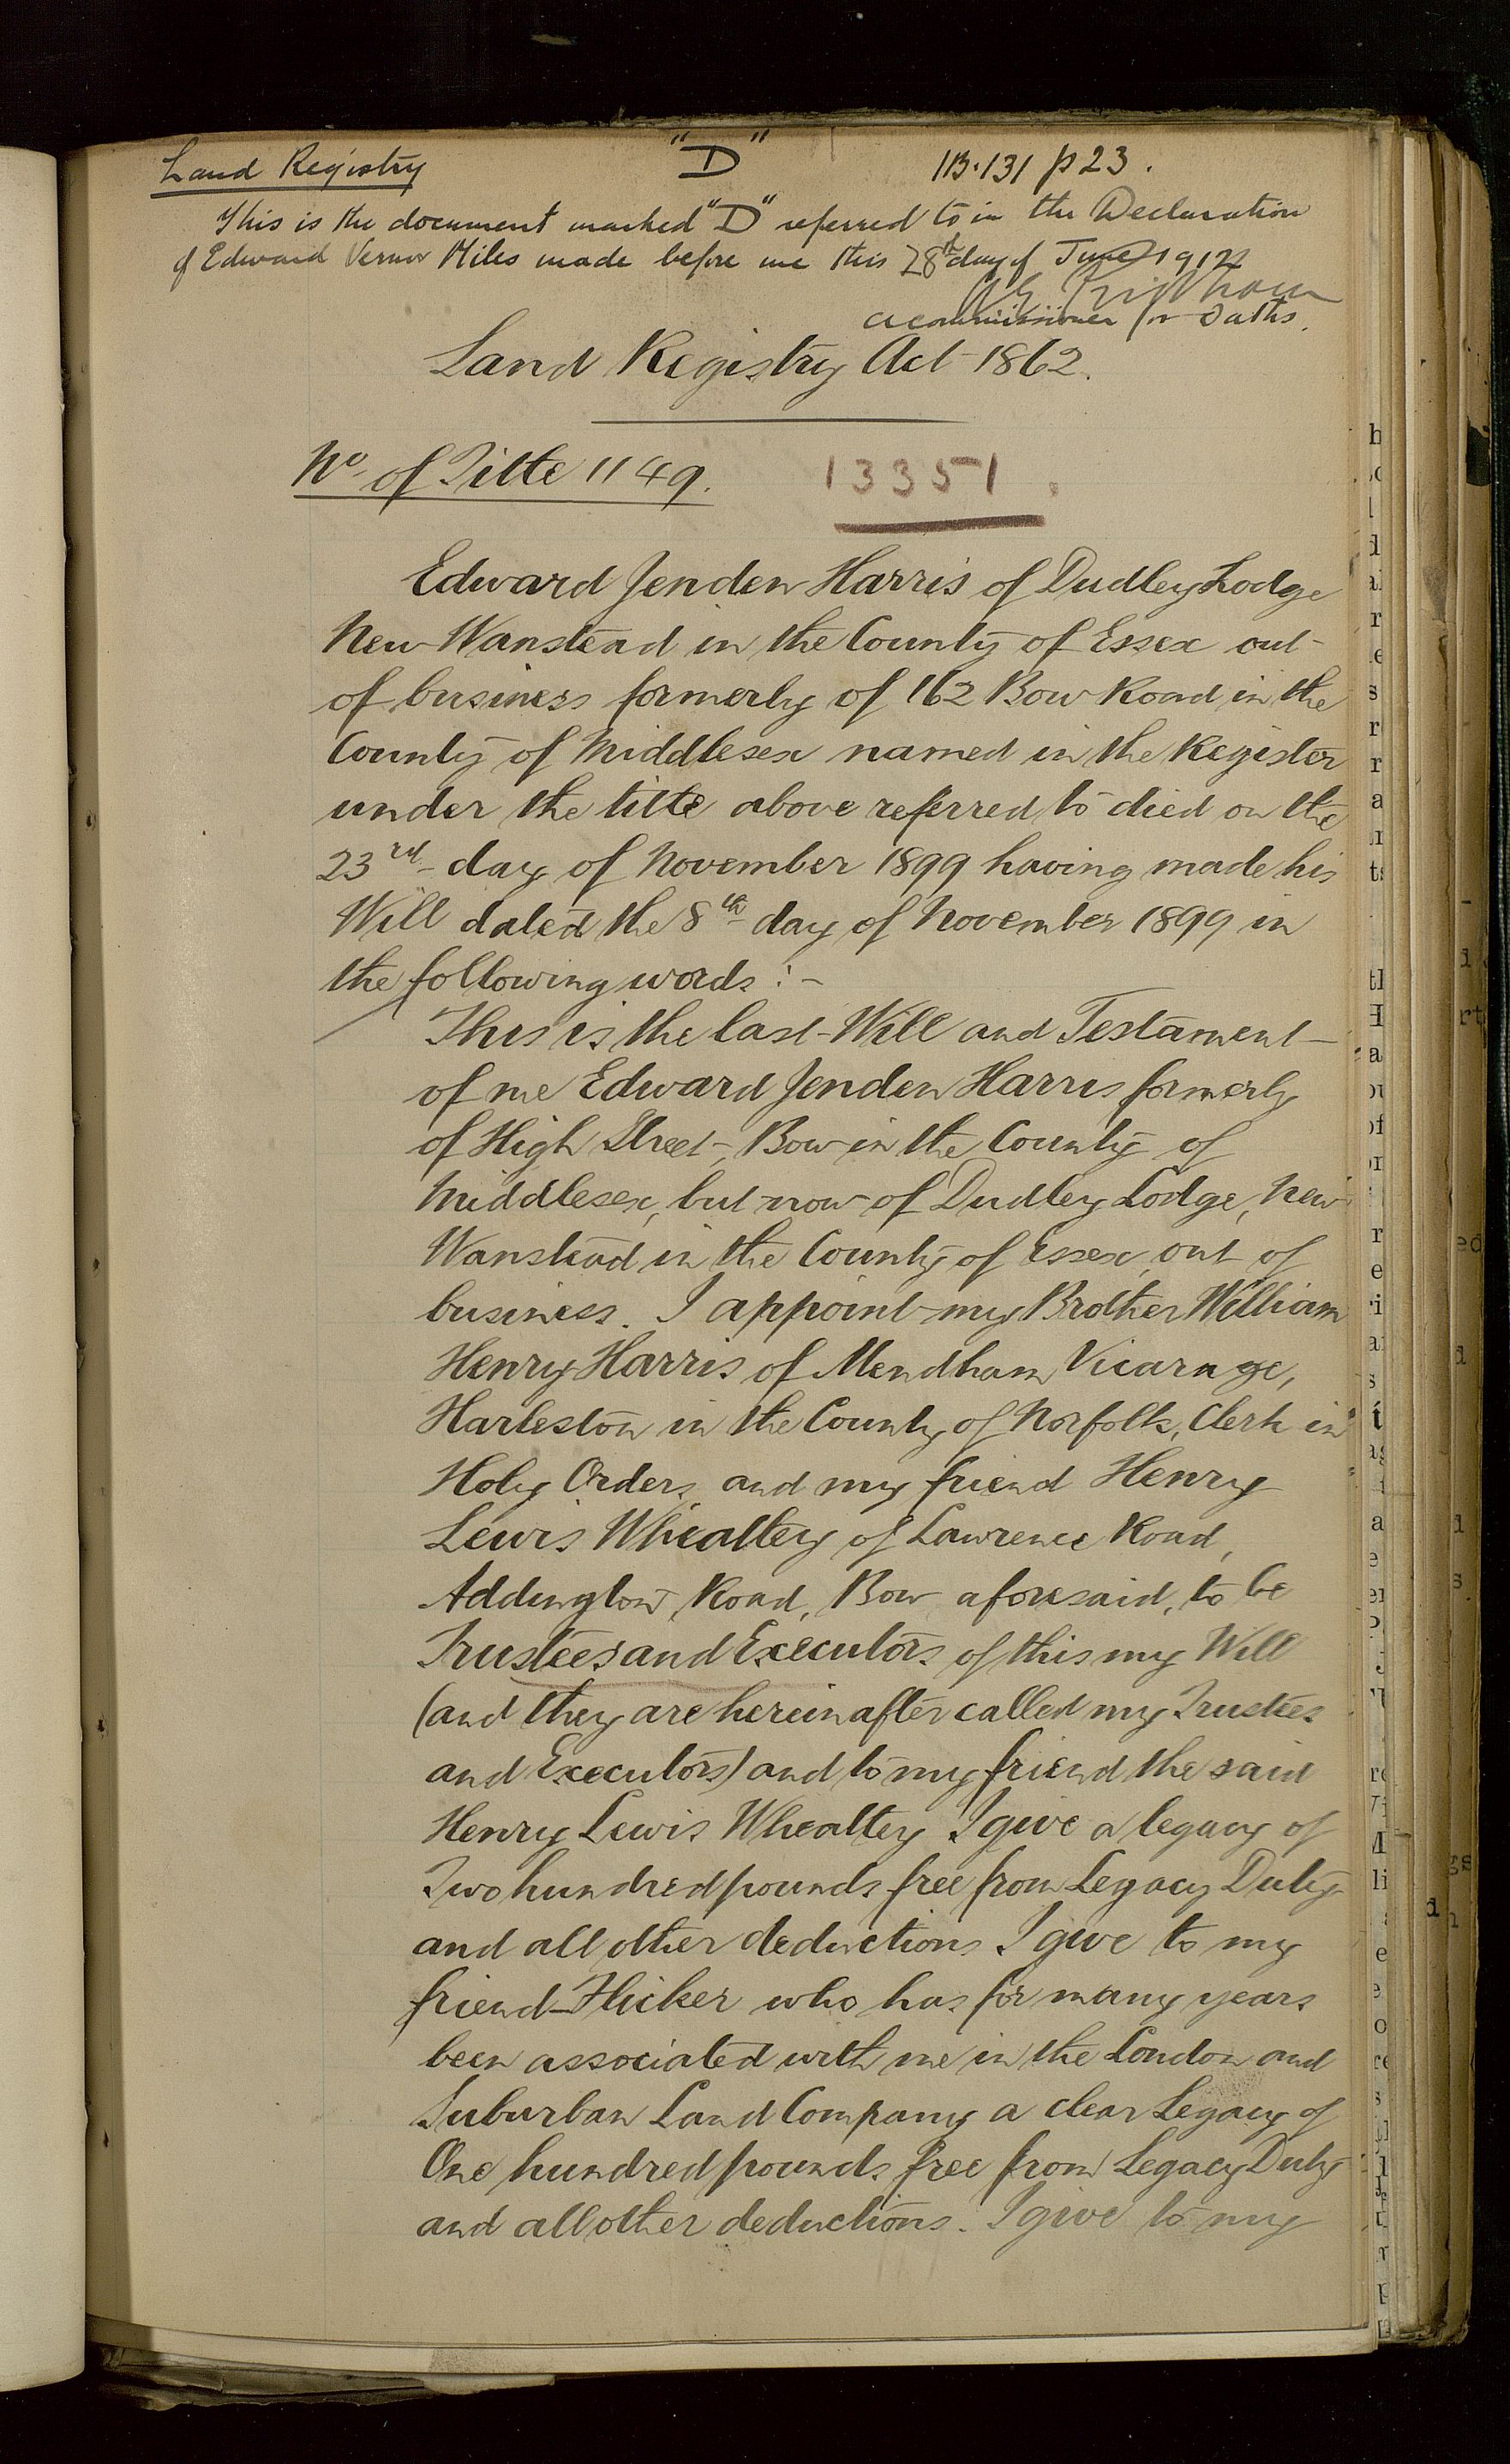 Land Registry "D" 113.131 p 23.
This is the document marked "D" referred to in the Declaration
of Edward Vernor Miles made before me this 28th day of June 1912
a commissioner for Oaths.
Land Registry Act 1862.
No. of Title 1149. 13351.
Edward Jenden Harris of Dudley Lodge
New Wanstead in the County of Essex out
of business formerly of 162 Bow Road in the
County of Middlesex named in the Register
under the title above referred to died on the
23rd day of November 1899 having made his
Will dated the 8th day of November 1899 in
the following words :-
This is the last Will and Testament
of me Edward Jenden Harris formerly
of High Street, Bow in the County of
Middlesex, but now of Dudley Lodge, New
Wanstead in the County of Essex, out of
business. I appoint my Brother William
Henry Harris of Mendham Vicarage,
Harleston in the County of Norfolk, Clerk in
Holy Orders and my friend Henry
Lewis Whealtey of Lawrence Road,
Addington Road, Bow aforesaid, to be
Trustees and Executors of this my Will
(and they are hereinafter called my Trustees
and Executors) and to my friend the said
Henry Lewis Whealtey I give a legacy of
Two hundred pounds free from Legacy Duty
and all other deductions I give to my
friend Flicker who has for many years
been associated with me in the London and
Suburban Land Company a clear Legacy of
One hundred pounds free from Legacy Duty
and all other deductions. I give to my